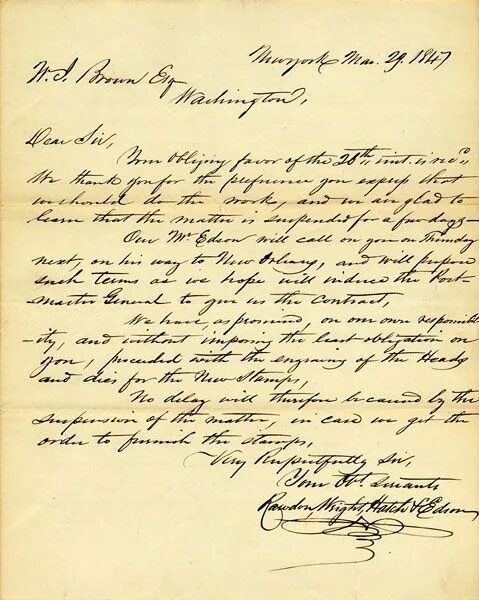 New York Mar. 29. 1847
W. J. Brown Esq
Washington,
Dear Sir,
Your Obliging favor of the 26th, inst. is rec'd,
We thank you for the preference you express that
we should do the work, and we are glad to
learn that the matter is suspended for a few days —
Our Mr. Edson will call on you on Thursday
next, on his way to New Orleans, and will propose
such terms as we hope will induce the Post-
Master General to give us the Contract,
We have, as promised, on our own responsibil
-ity, and without imposing the least obligation on
you, proceeded with the engraving of the Heads
and dies for the New Stamps,
No delay will therefore be caused by the
suspension of the matter, in case we get the
order to furnish the stamps,
Very Respectfully Sir,
Your Obt. Servants
Rawdon, Wright, Hatch & Edson